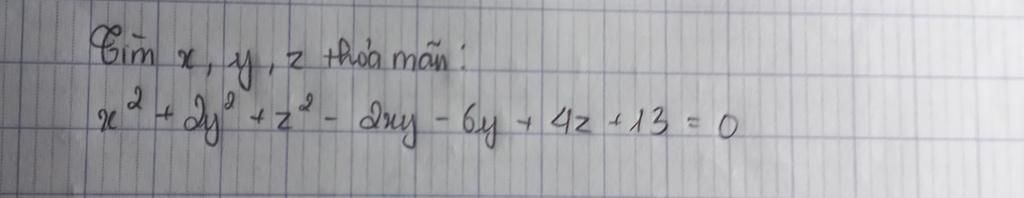 Tìm x, y, z thỏa mãn:
x² + 2y² + z² - 2xy - 6y + 4z + 13 = 0